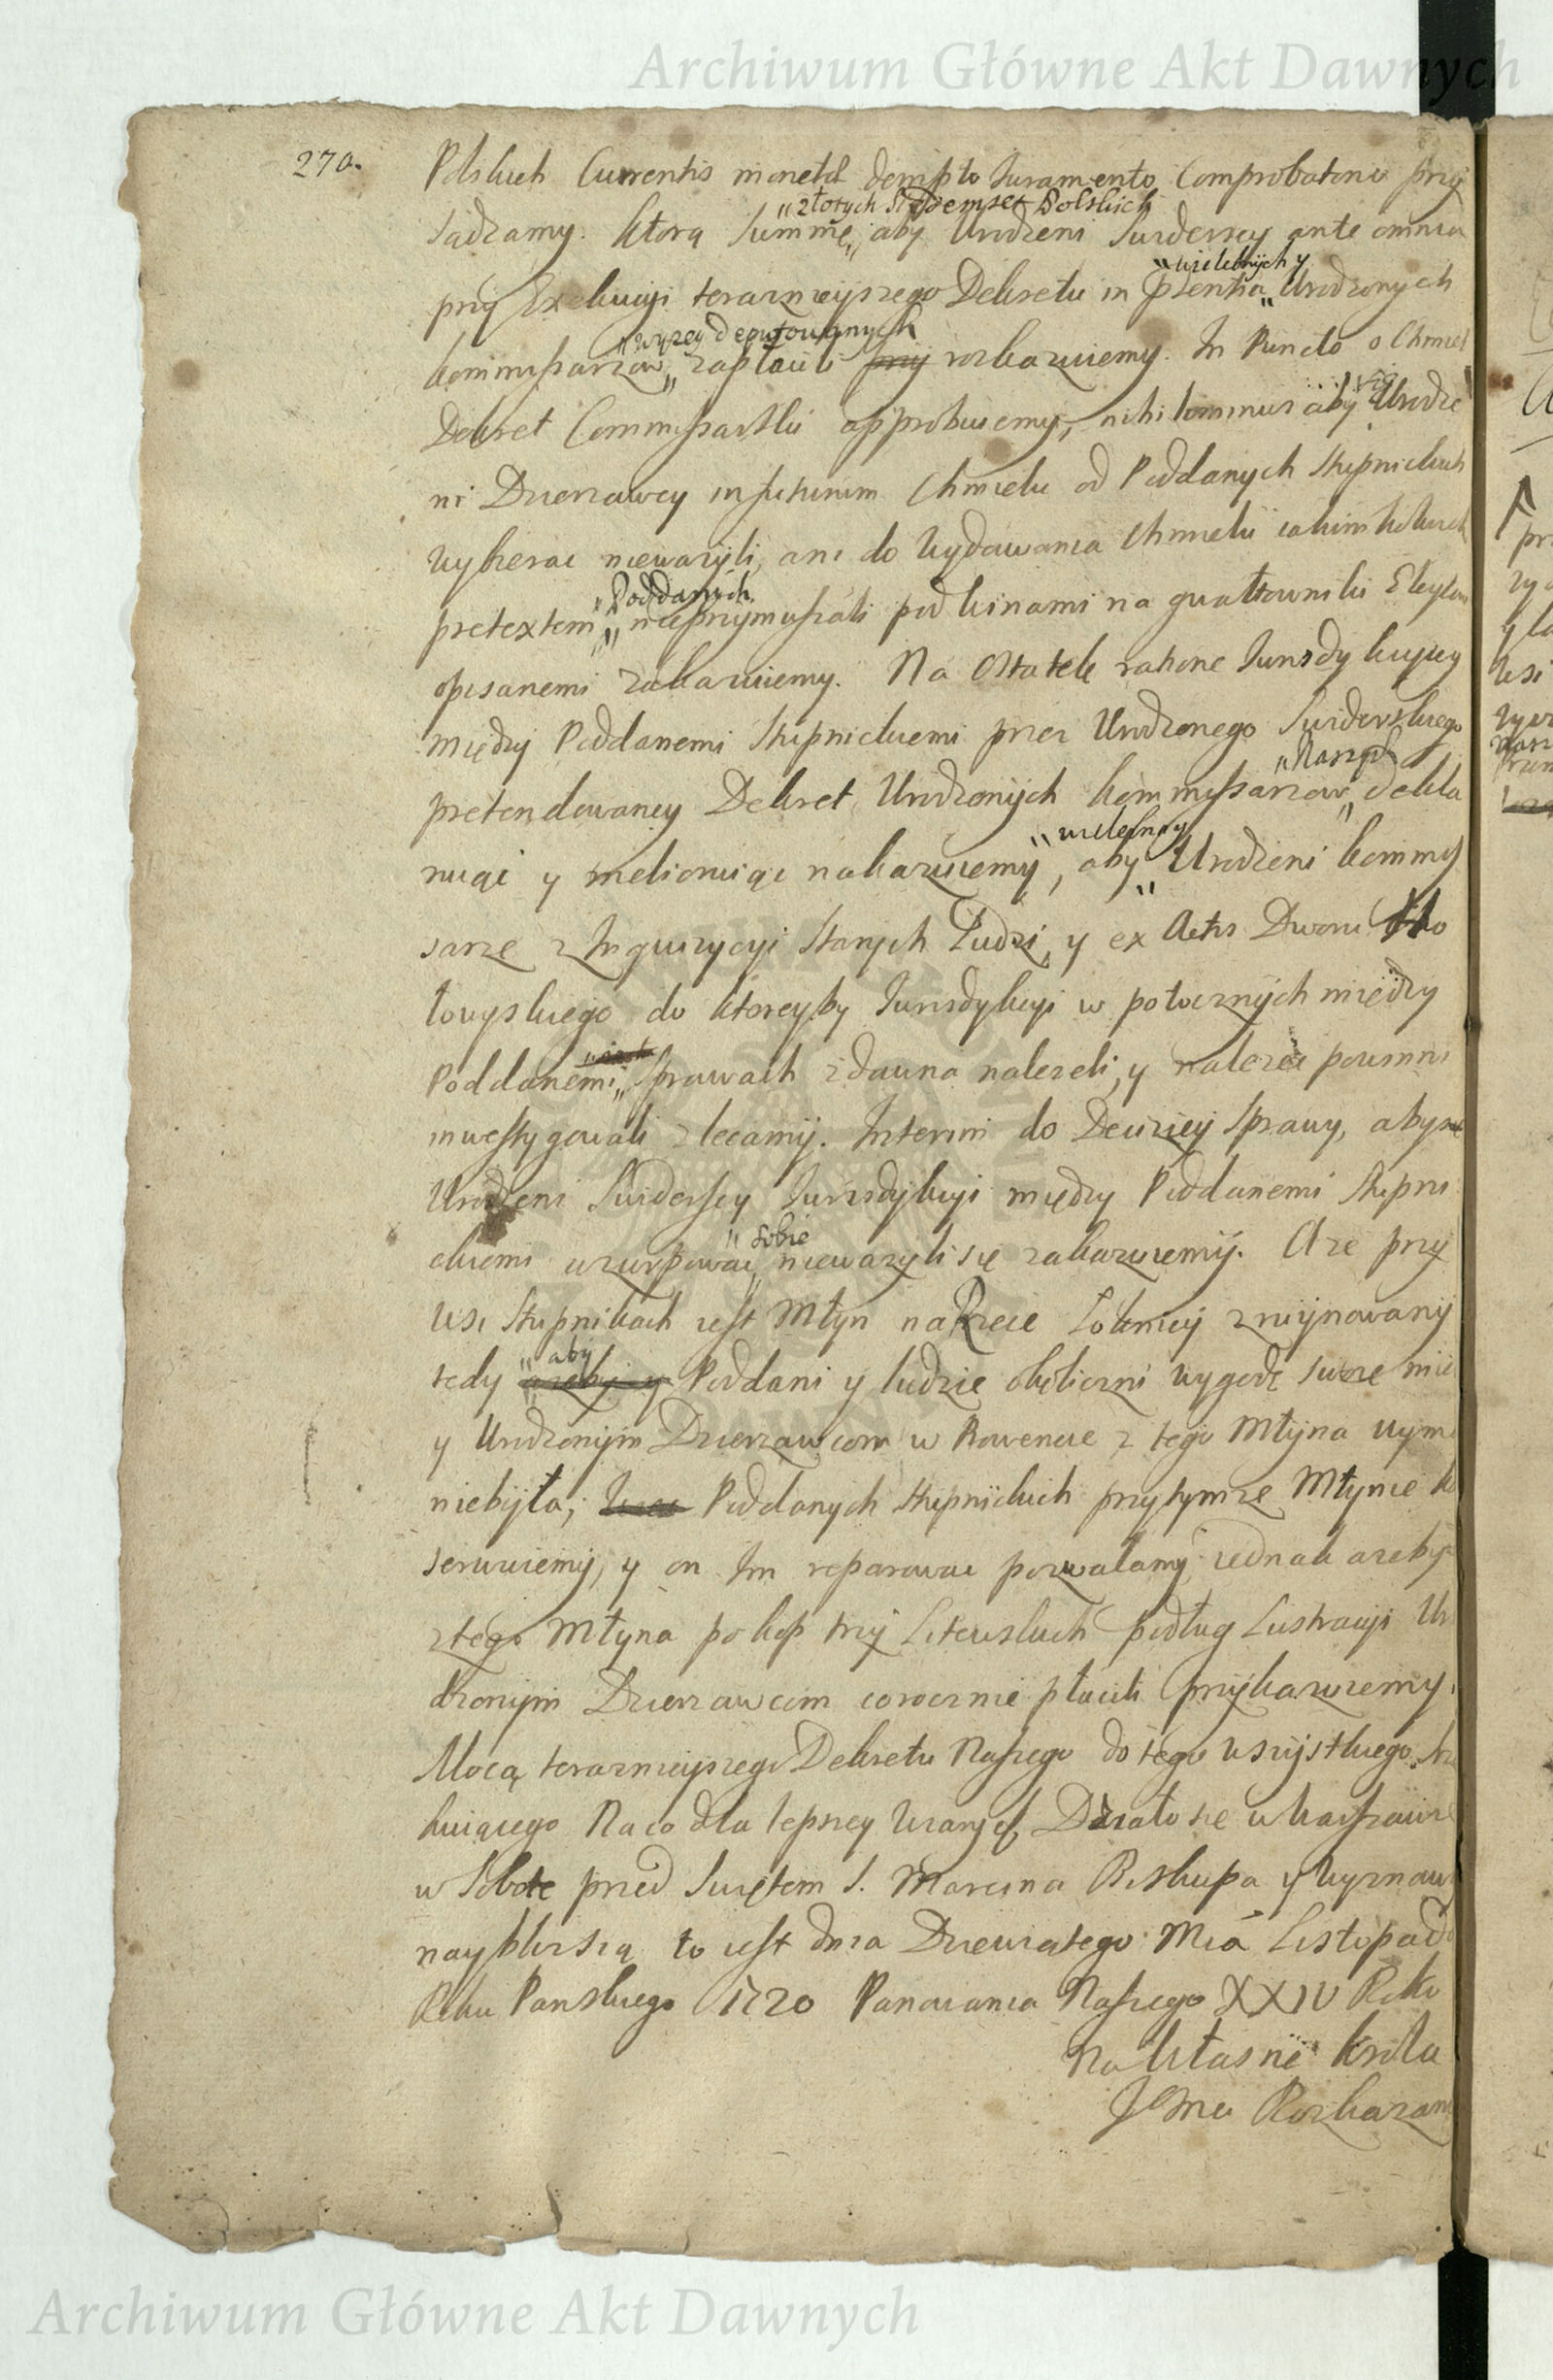 Archiwum Główne Akt Dawnych
270.
Polskich Currentis monetæ dempto Juramento Comprobatorio przy
„złotych Siedemset Polskich
sądzamy. ktorą Summę „ aby Urodzeni Swiderscy ante omnia
„wielebnych y
przy Exekucyi teraznieyszego Dekretu in pszentia „ Urodzonych
„wyzey deputowanych
kommissarzow „ zapłacili przy rozkazuiemy. In Puncto o Chmiel
Dekret Commissarski approbuiemy, nihilominus aby Urodze
ni Dzierzawcy in futurum Chmielu od Poddanych Stupnickich
wybierac niewazyli, ani do wydawania Chmielu iakimkolwiek
„Poddanych
pretextem „ nieprzymuszali pod winami na gwałtowniki
opisanemi zakazuiemy. Na Ostatek ratione Jurisdykcyiey
między Poddanemi Stupnickiemi przez Urodzonego Swiderskiego
„Naszych
pretendowaney Dekret Urodzonych kommissarzow „ dekla
„wielebny y
ruąc y melioruiąc nakazuiemy, aby „ Urodzeni kommis
sarze z Inquizycyi Starych Ludzi, y ex Actis Dworu
do ktoreyby Jurisdykcyi w potocznych między
Poddanemi „ Sprawach zdawna nalezeli, y nalezec powinni
inwestygowali zlecamy. Interim do Deciziey Sprawy, aby sie
Urodzeni Swiderscy Jurisdykcyi między Poddanemi Stupni
„sobie
ckiemi uzurpowac „ niewazyli się zakazuiemy. A ze przy
wsi Stupnikach iest Młyn na Rzece zruynowany
„aby
tedy azeby y Poddani y ludzie okoliczni wygodę swoie mie
y Urodzonym Dzierzawcom w Rowencie z tego Młyna uyma
niebyła, Poddanych Stupnickich przy tymze Młynie ko
serwuiemy, y on Im reparowac pozwalamy, iednak azeby
z tego Młyna po kop trzy Litewskich podług Lustracyi Ur
dzonym Dzierzawcom corocznie płacili przykazuiemy.
Mocą terazneyszego Dekretu Naszego do tego wszystkiego
kuiącego Na co dla lepszey Działo się w Warszawie
w Sobotę przed Swiętem S. Marcina Biskupa y wyznaw
nayblizszą to iest dnia Dziewiątego Mca Listopada
Roku Panskiego 1720 Panowania Naszego XXIV Roku
Na Własne krola
Jgmci Rozkazan
Archiwum Główne Akt Dawnych